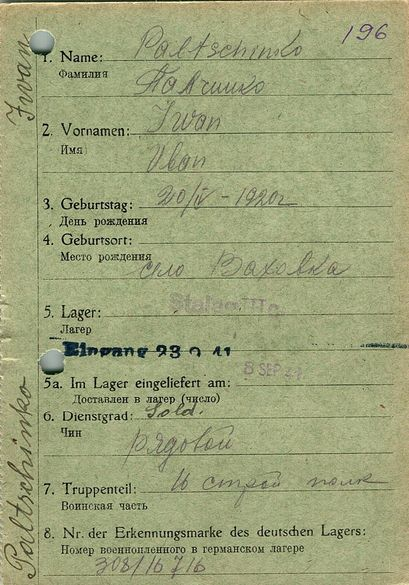 196
Iwan
1. Name: Paltschinko
Фамилия
Палчинко
2. Vornamen: Iwan
Имя
Иван
3. Geburtstag: 20/IV - 1920г
День рождения
4. Geburtsort:
Место рождения
село Ваховка
5. Lager: Stalag
Лагер
Eingang 23 9. 41
8 SEP
5a. Im Lager eingeliefert am:
Доставлен в лагер (число)
6. Dienstgrad: Sold.
Чин
рядовой
7. Truppenteil: 16 строй полк
Воинская часть
8. Nr. der Erkennungsmarke des deutschen Lagers:
Номер военнопленного в германском лагере
308/16716
Paltschinko